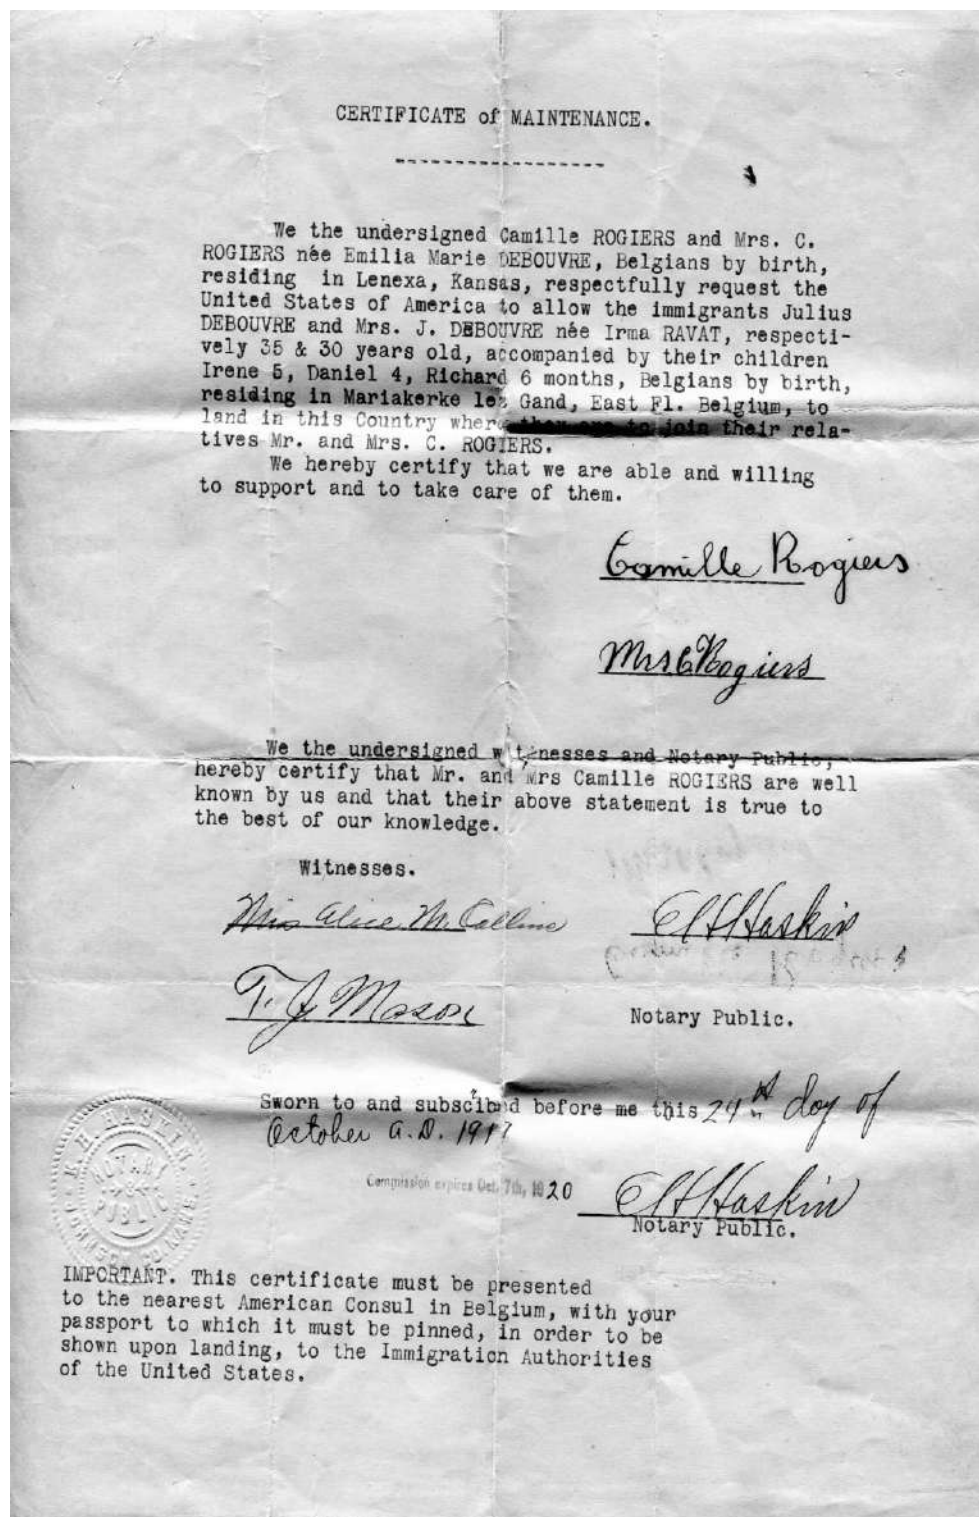 CERTIFICATE of MAINTENANCE.
------------------
We the undersigned Camille ROGIERS and Mrs. C.
ROGIERS née Emilia Marie DEBOUVRE, Belgians by birth,
residing in Lenexa, Kansas, respectfully request the
United States of America to allow the immigrants Julius
DEBOUVRE and Mrs. J. DEBOUVRE née Irma RAVAT, respecti-
vely 35 & 30 years old, accompanied by their children
Irene 5, Daniel 4, Richard 6 months, Belgians by birth,
residing in Mariakerke lez Gand, East Fl. Belgium, to
land in this Country where they are to join their rela-
tives Mr. and Mrs. C. ROGIERS.
We hereby certify that we are able and willing
to support and to take care of them.
Camille Rogiers
Mrs C Rogiers
We the undersigned witnesses and Notary Public,
hereby certify that Mr. and Mrs Camille ROGIERS are well
known by us and that their above statement is true to
the best of our knowledge.
Witnesses.
Miss Alice M. Collins
T. J. Mason
Haskin
Notary Public.
Sworn to and subscibed before me this 24 day of
October A.D. 191
Commission expires Oct. 7th, 1920
Haskin
Notary Public.
HASKIN.
NOTARY
PUBLIC
JOHNSON CO. KANS.
IMPORTANT. This certificate must be presented
to the nearest American Consul in Belgium, with your
passport to which it must be pinned, in order to be
shown upon landing, to the Immigration Authorities
of the United States.